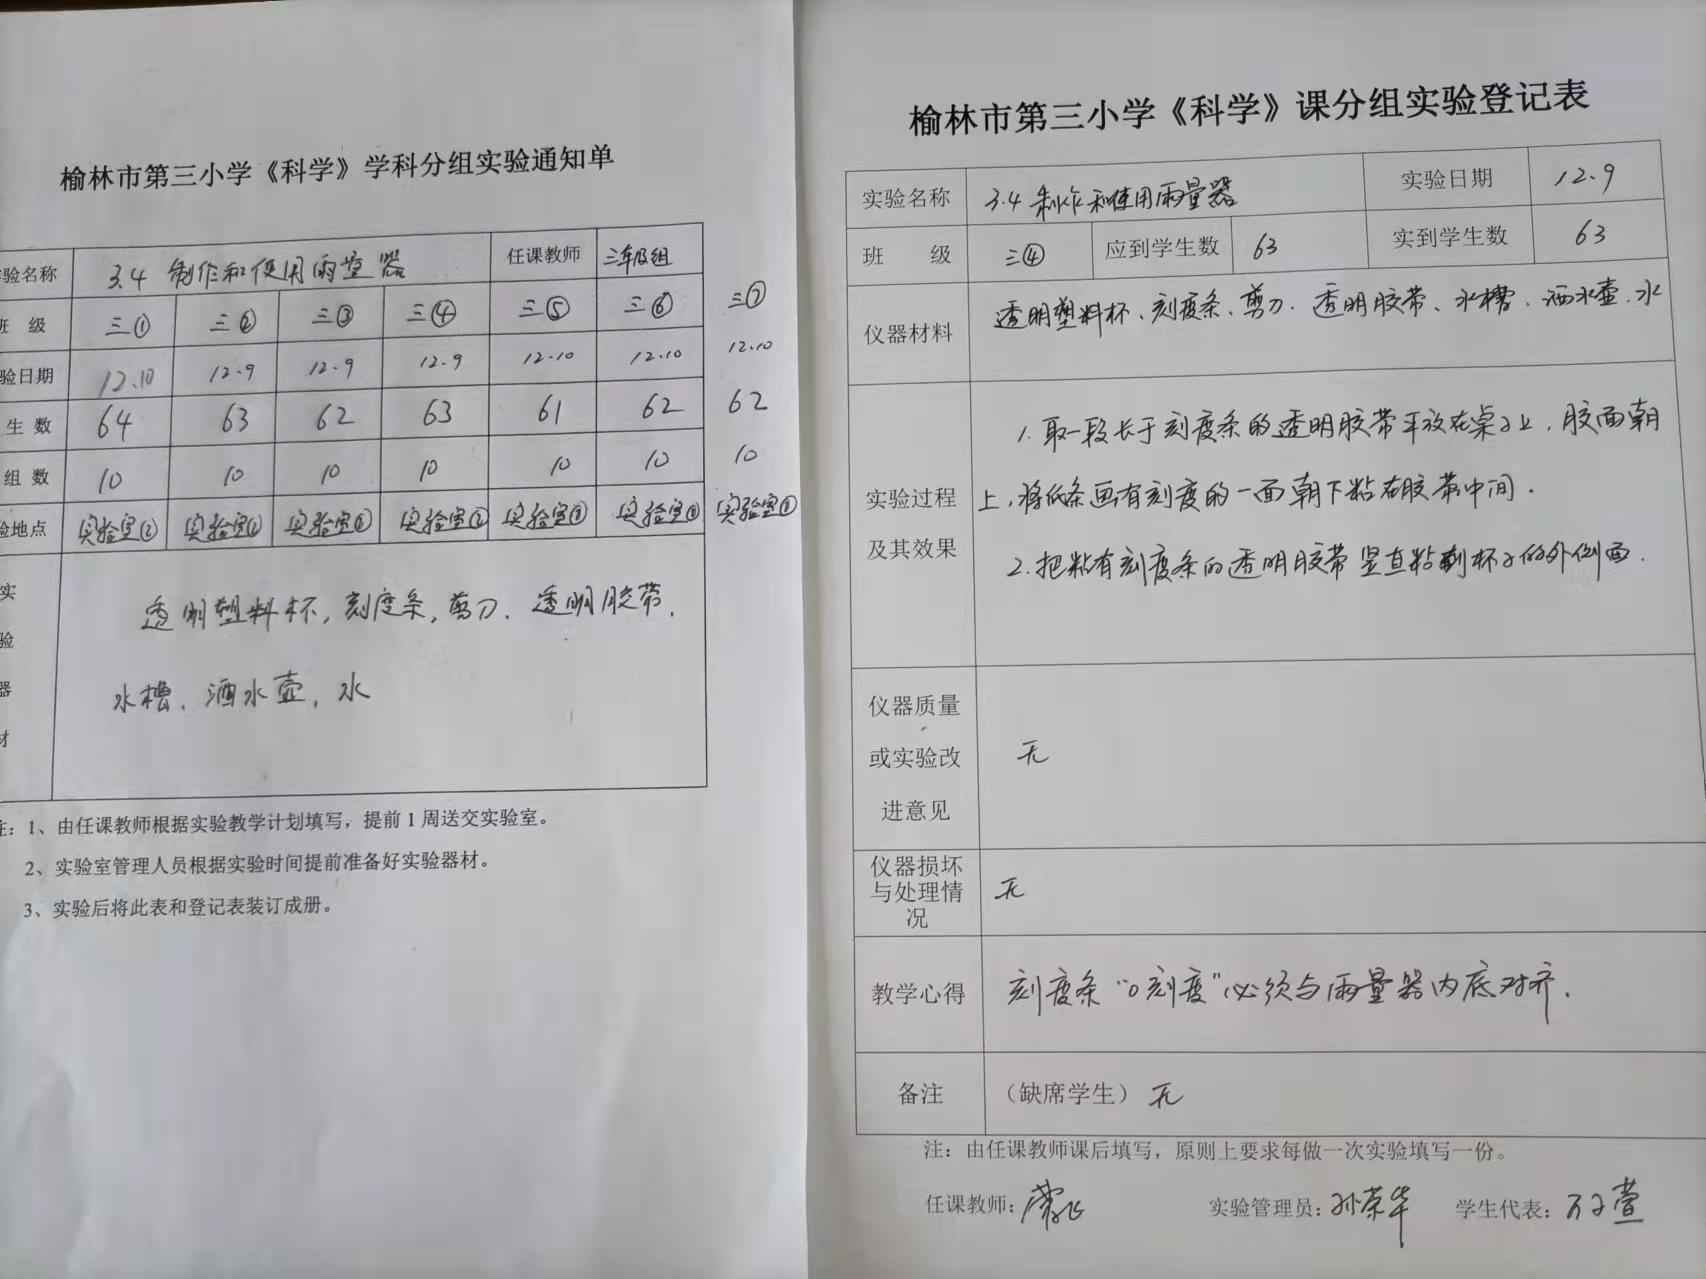 榆林市第三小学《科学》学科分组实验通知单
验名称 3.4 制作和使用雨量器 任课教师 三年级组
班 级 三① 三② 三③ 三④ 三⑤ 三⑥ 三⑦
验日期 12.10 12.9 12.9 12.9 12.10 12.10 12.10
生 数 64 63 62 63 61 62 62
组 数 10 10 10 10 10 10 10
验地点 实验室② 实验室 实验室 实验室 实验室 实验室 实验室
实
验
器
材
透明塑料杯,刻度条,剪刀.透明胶带.
水槽.洒水壶,水
注:1、由任课教师根据实验教学计划填写,提前1周送交实验室。
2、实验室管理人员根据实验时间提前准备好实验器材。
3、实验后将此表和登记表装订成册。
榆林市第三小学《科学》课分组实验登记表
实验名称 3.4 制作和使用雨量器 实验日期 12.9
班 级 三④ 应到学生数 63 实到学生数 63
仪器材料 透明塑料杯、刻度条、剪刀.透明胶带、水槽.洒水壶.水
实验过程
及其效果
1.取一段长于刻度条的透明胶带平放在桌子上,胶面朝
上,将纸条画有刻度的一面朝下粘在胶带中间.
2.把粘有刻度条的透明胶带竖直粘到杯子的外侧面.
仪器质量
或实验改
进意见
无
仪器损坏
与处理情
况
无
教学心得 刻度条“0刻度”必须与雨量器内底对齐.
备注 (缺席学生) 无
注:由任课教师课后填写,原则上要求每做一次实验填写一份。
任课教师: 实验管理员:孙荣华 学生代表:万子萱